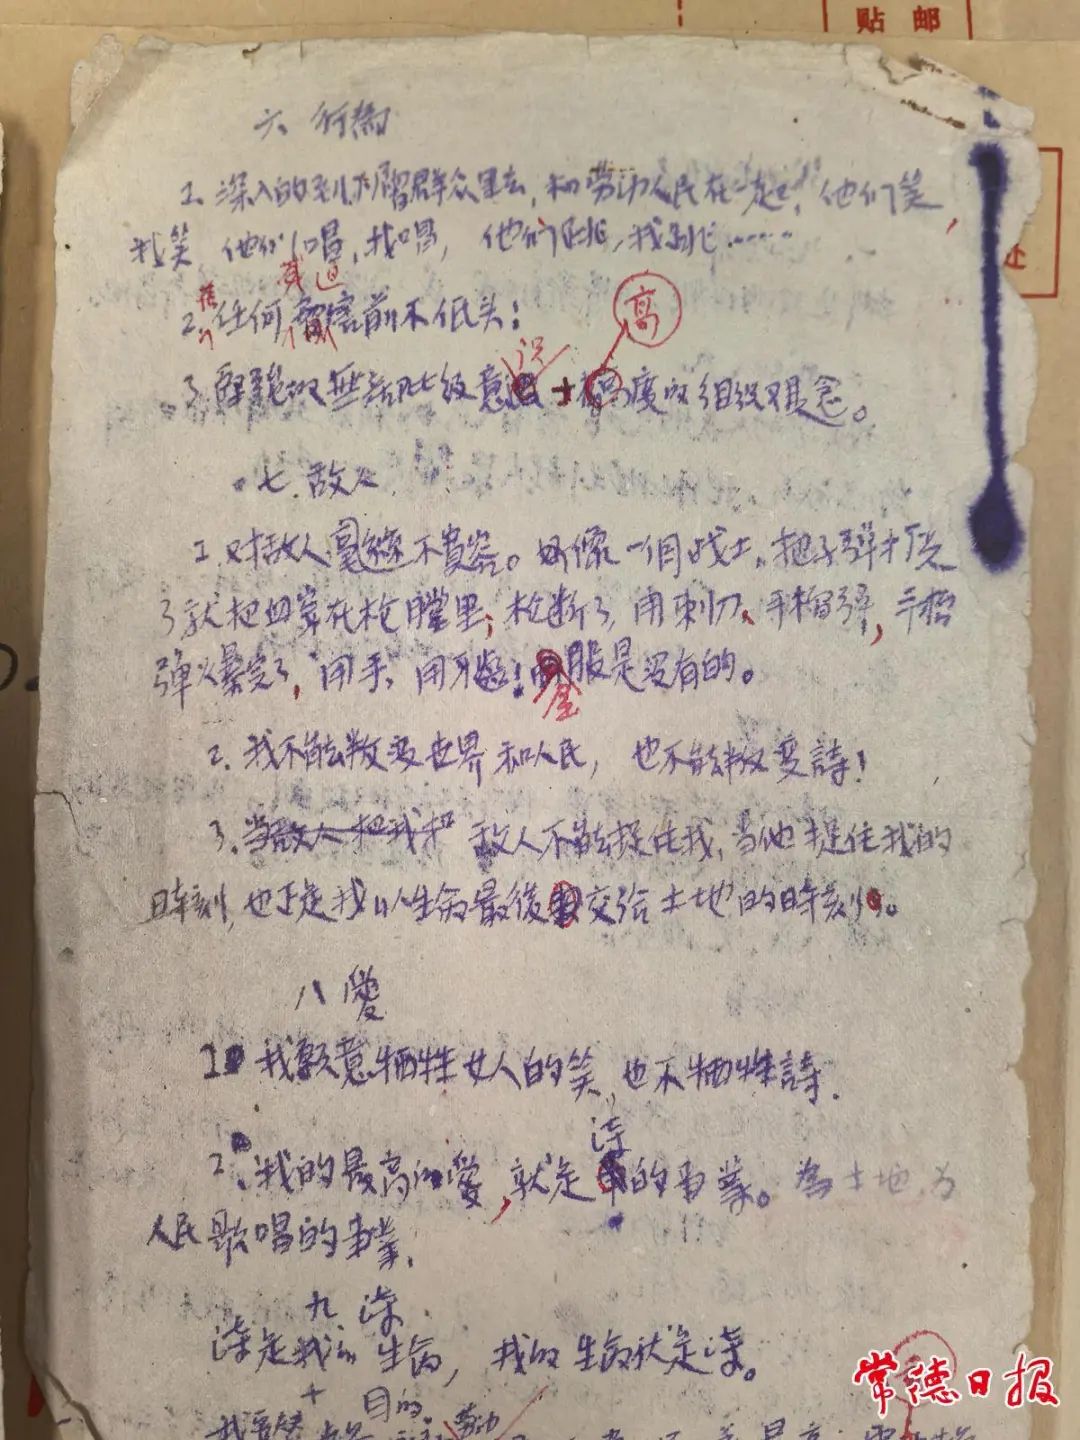 贴 邮
六、行为
1. 深入的到群众里去,和劳动人民在一起,他们笑,
我笑,他们唱,我唱,他们跳,我跳……
2. 任何害前不低头!
高
3. 无产阶级意识+高度的组织观念。
七. 敌人
1. 对敌人毫不宽容。好像一个战士,把子弹打完
了就把血穿在枪膛里;枪断了,用刺刀、手榴弹,手榴
弹爆完了,用手、用牙齿!屈服是没有的。
2. 我不能叛变世界和人民,也不能叛变詩!
3. 当敌人把我和 敌人不能捉住我,当他捉住我的
時刻,也正是我以生命最後交给土地的時刻。
八 愛
1. 我愿意牺牲女人的笑,也不牺牲詩.
2. 我的最高的愛,就是诗的事業。為土地,为
人民歌唱的事業.
九 诗.
诗是我的生命,我的生命就是诗。
十 目的.
劳动
常德日报